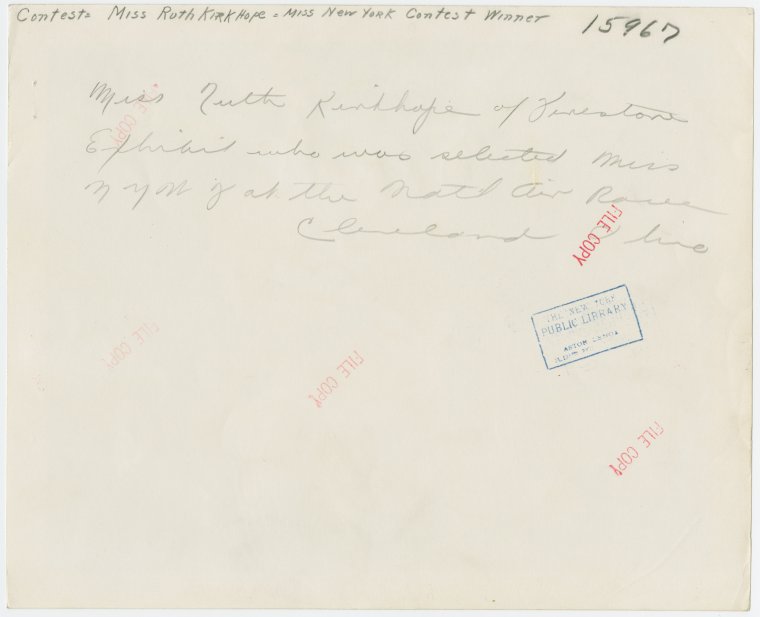 Contest = Miss Ruth Kirkhope = Miss New York Contest Winner
15967
Miss Ruth Kirkhope of Firestone
Exhibit who was selected Miss
N Y W F at the Natl Air Races
Cleveland Ohio
FILE COPY
FILE COPY
THE NEW YORK
PUBLIC LIBRARY
ASTOR LENOX
FILE COPY
FILE COPY
FILE COPY